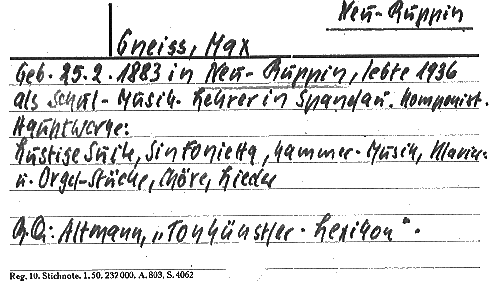 Neu-Ruppin
Gneiss, Max
Geb. 25.2.1883 in Neu-Ruppin, lebte 1936
als Schul-Musik-Lehrer in Spandau. Komponist.
Hauptwerke:
Lustige Suite, Sinfonietta, Kammer-Musik, Klavier-
u. Orgel-Stücke, Chöre, Lieder
A.Q.: Altmann, „Tonkünstler-Lexikon".
Reg. 10. Stichnote. 1.50. 232000. A. 803. S. 4062